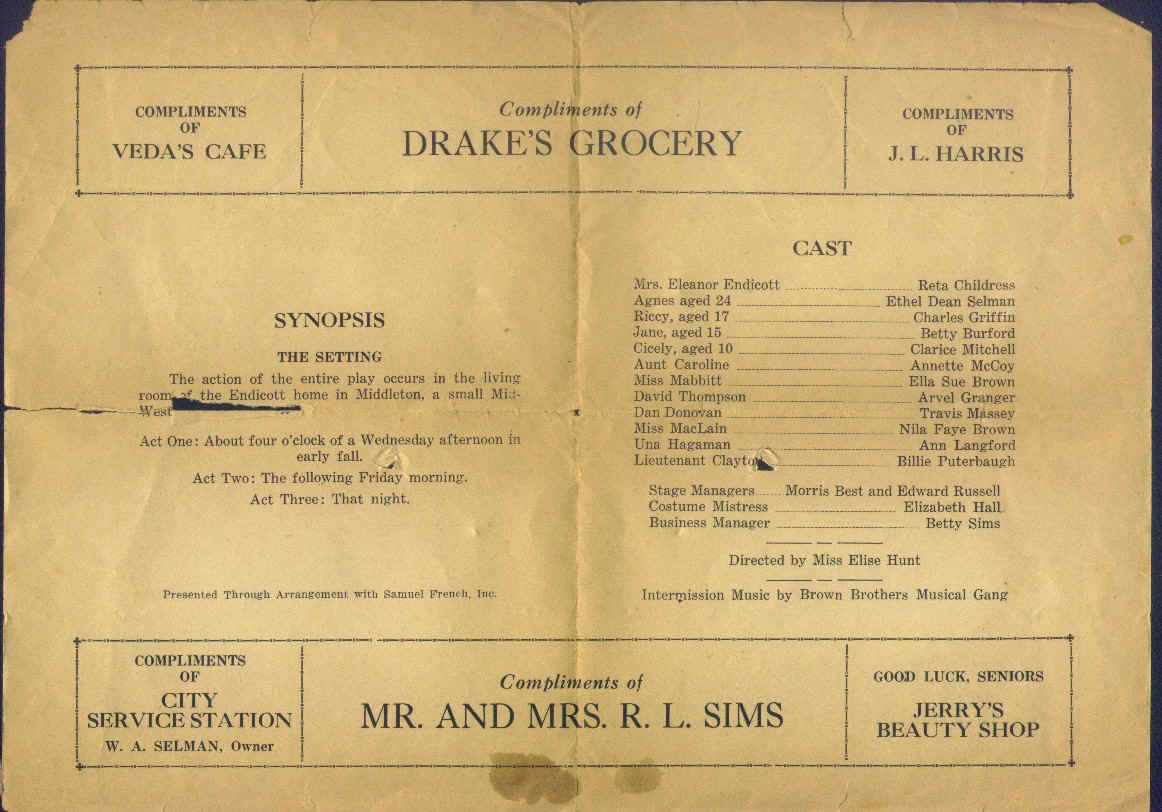 COMPLIMENTS
OF
VEDA'S CAFE
Compliments of
DRAKE'S GROCERY
COMPLIMENTS
OF
J. L. HARRIS
SYNOPSIS
THE SETTING
The action of the entire play occurs in the living
room of the Endicott home in Middleton, a small Mid-
West
Act One: About four o'clock of a Wednesday afternoon in
early fall.
Act Two: The following Friday morning.
Act Three: That night.
Presented Through Arrangement with Samuel French, Inc.
CAST
Mrs. Eleanor Endicott Reta Childress
Agnes aged 24 Ethel Dean Selman
Riccy, aged 17 Charles Griffin
Jane, aged 15 Betty Burford
Cicely, aged 10 Clarice Mitchell
Aunt Caroline Annette McCoy
Miss Mabbitt Ella Sue Brown
David Thompson Arvel Granger
Dan Donovan Travis Massey
Miss MacLain Nila Faye Brown
Una Hagaman Ann Langford
Lieutenant Clayton Billie Puterbaugh
Stage Managers Morris Best and Edward Russell
Costume Mistress Elizabeth Hall
Business Manager Betty Sims
Directed by Miss Elise Hunt
Intermission Music by Brown Brothers Musical Gang
COMPLIMENTS
OF
CITY
SERVICE STATION
W. A. SELMAN, Owner
Compliments of
MR. AND MRS. R. L. SIMS
GOOD LUCK, SENIORS
JERRY'S
BEAUTY SHOP